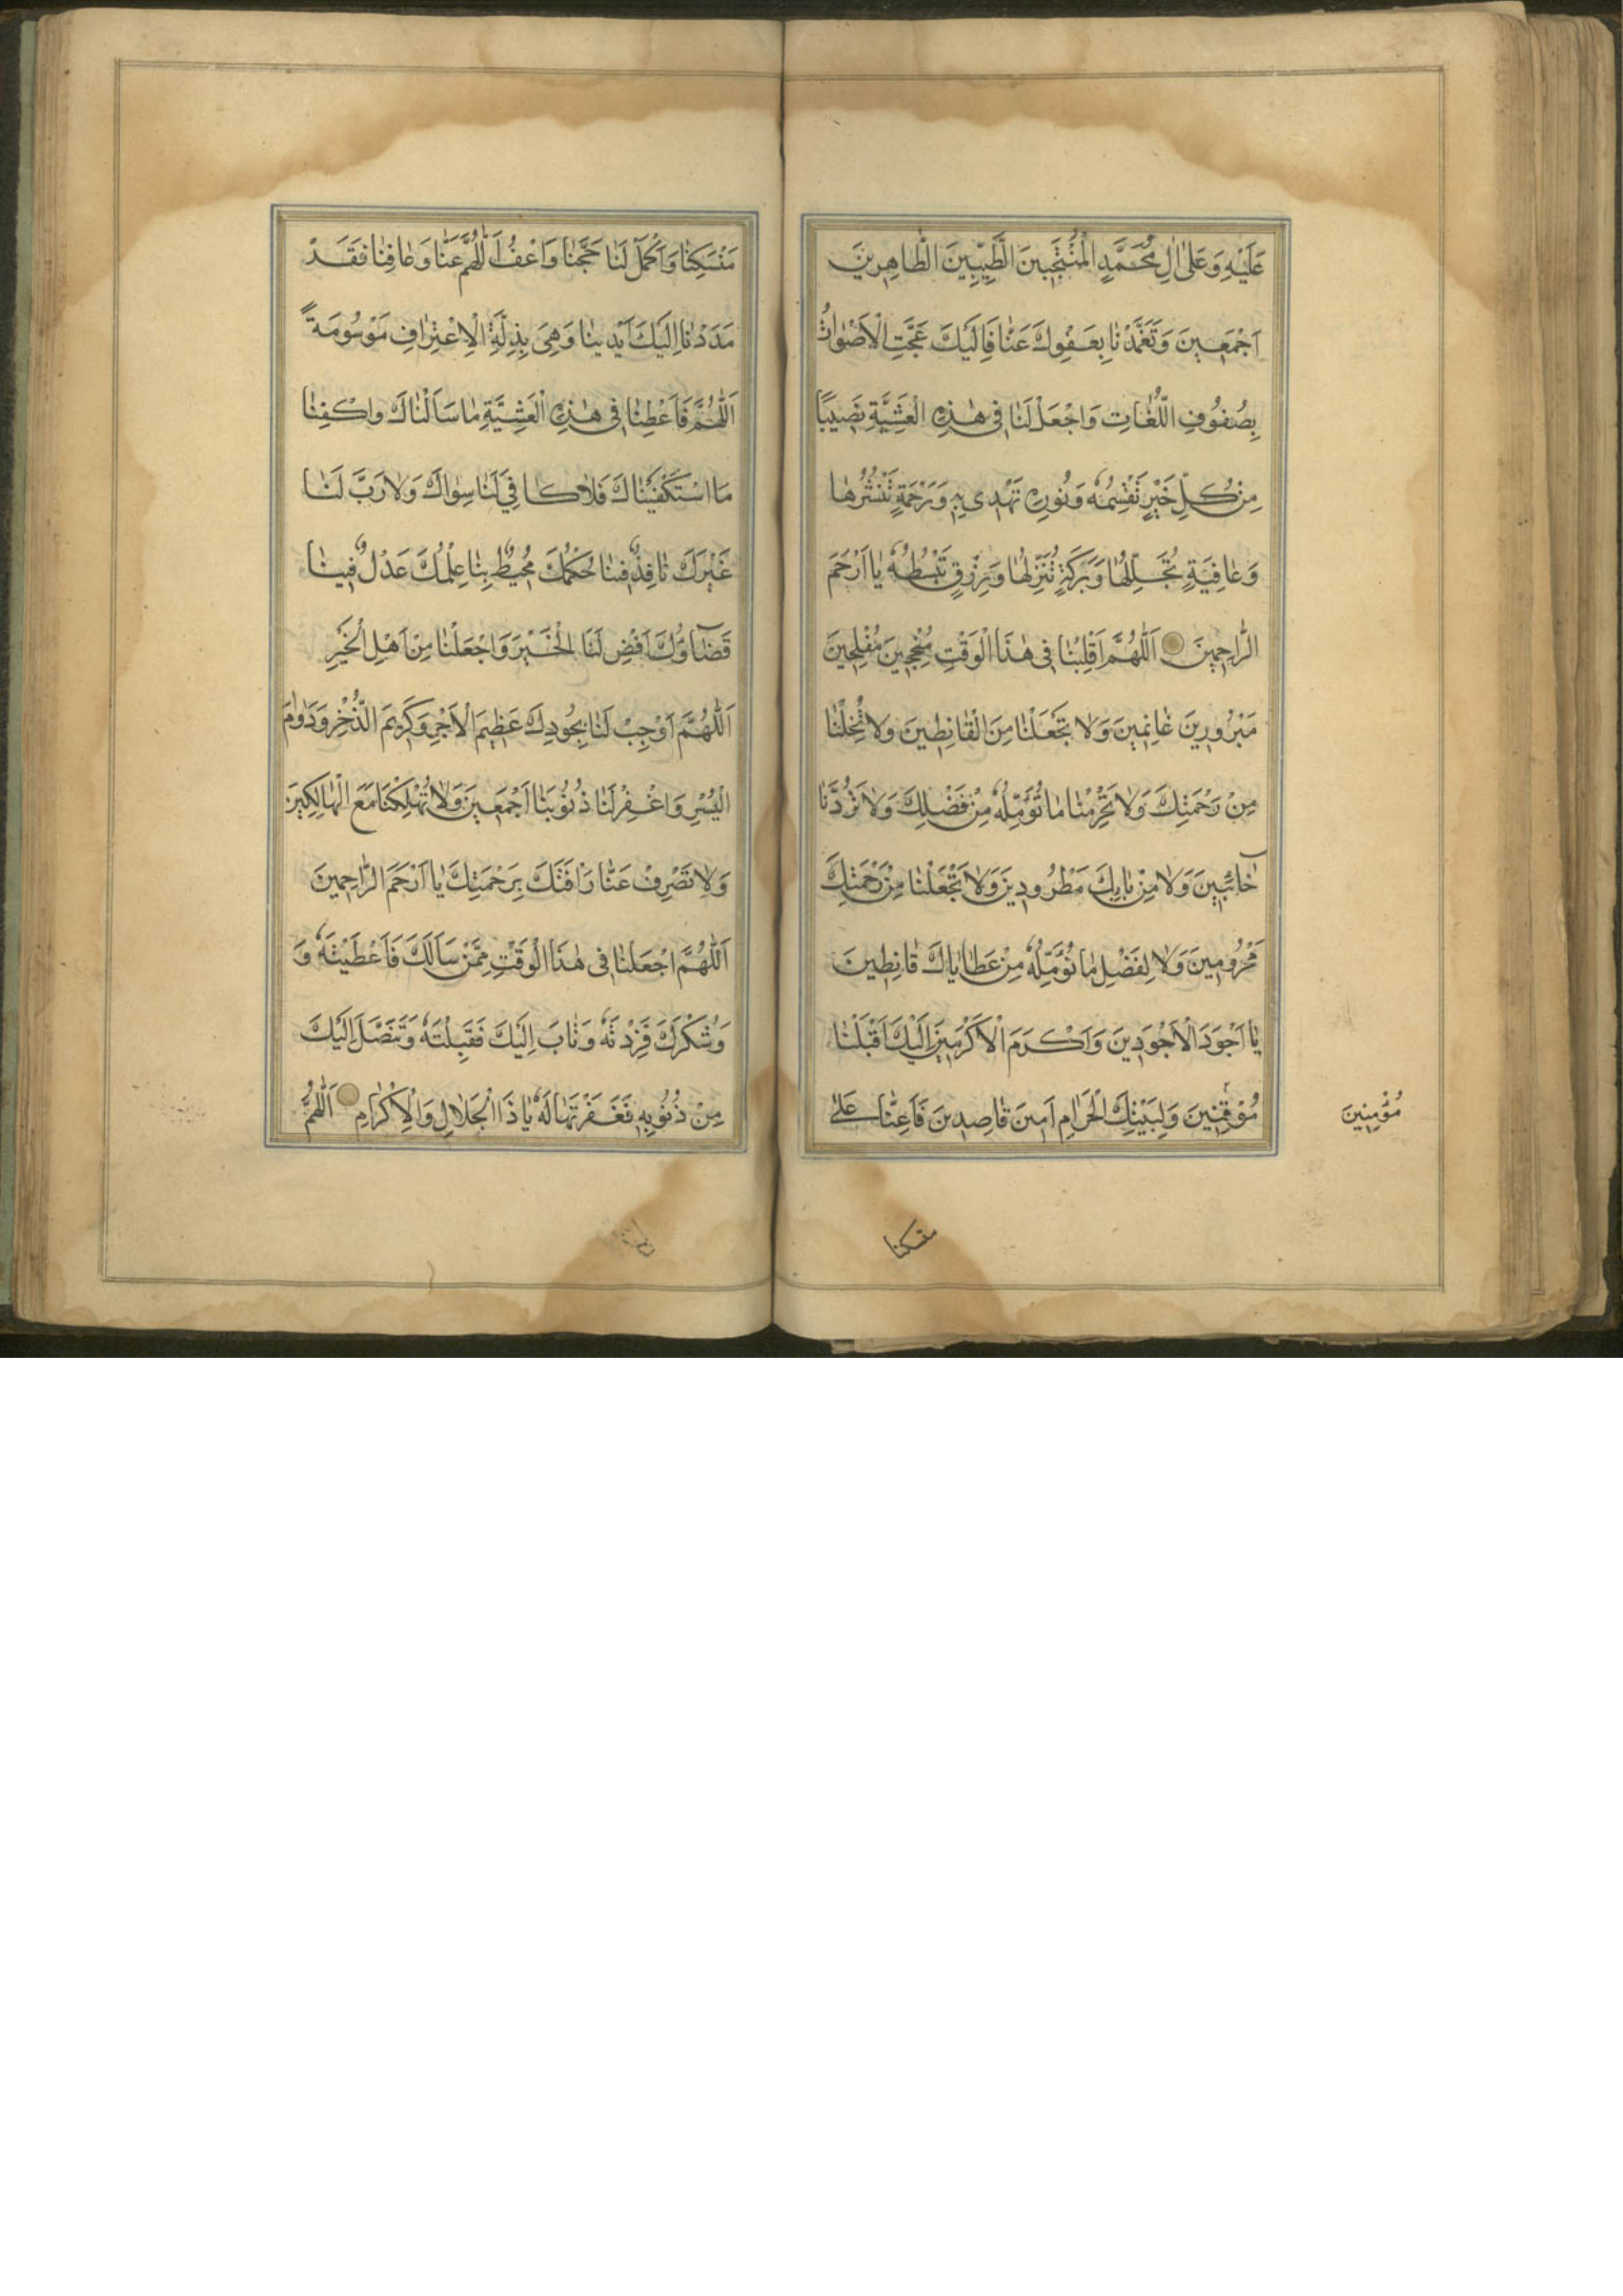 عَلَيْهِ وَعَلىٰ اٰلِ مُحَمَّدٍ الْمُنْتَجَبينَ الطَّيِّبِينَ الطَّاهِرينَ
اَجْمَعينَ وَتَغَمَّدْنا بِعَفْوِكَ عَنّا فَاِلَيْكَ عَجَّتِ الْاَصْواتُ
بِصُنُوفِ اللُّغاتِ وَاجْعَلْ لَنا فى هٰذِهِ الْعَشِيَّةِ نَصيبًا
مِنْ كُلِّ خَيْرٍ تَقْسِمُهُ وَنُورٍ تَهْدى بِهِ وَرَحْمَةٍ تَنْشُرُها
وَعافِيَةٍ تُجَلِّلُها وَبَرَكَةٍ تُنْزِلُها وَرِزْقٍ تَبْسُطُهُ يا اَرْحَمَ
الرّاحِمينَ اَللّٰهُمَّ اَقْلِبْنا فى هٰذَا الْوَقْتِ مُنْجِحينَ مُفْلِحينَ
مَبْرُورينَ غانِمينَ وَلا تَجْعَلْنا مِنَ الْقانِطينَ وَلا تُخْلِنا
مِنْ رَحْمَتِكَ وَلا تَحْرِمْنا ما نُؤَمِّلُهُ مِنْ فَضْلِكَ وَلا تَرُدَّنا
خائِبينَ وَلا مِنْ بابِكَ مَطْرُودينَ وَلا تَجْعَلْنا مِنْ رَحْمَتِكَ
مَحْرُومينَ وَلا لِفَضْلِ ما نُؤَمِّلُهُ مِنْ عَطاياكَ قانِطينَ
يا اَجْوَدَ الْاَجْوَدينَ وَاَكْرَمَ الْاَكْرَمينَ اِلَيْكَ اَقْبَلْنا
مُوْقِنينَ وَلِبَيْتِكَ الْحَرامِ امينَ قاصِدينَ فَاَعِنّا عَلىٰ
مُؤْمِنِينَ
منسكنا
مَنْسَكِنا وَاَكْمِلْ لَنا حَجَّنا وَاعْفُ اَللّٰهُمَّ عَنّا وَعافِنا فَقَدْ
مَدَدْنا اِلَيْكَ اَيْدِيَنا وَهِىَ بِذِلَّةِ الْاِعْتِرافِ مَوْسُومَةً
اَللّٰهُمَّ فَاَعْطِنا فى هٰذِهِ الْعَشِيَّةِ ما سَاَلْناكَ وَاكْفِنا
مَا اسْتَكْفَيْناكَ فَلا كافِيَ لَنا سِواكَ وَلا رَبَّ لَنا
غَيْرَكَ نافِذٌ فينا حُكْمُكَ مُحيطٌ بِنا عِلْمُكَ عَدْلٌ فينا
قَضاؤُكَ اَقْضِ لَنَا الْخَيْرَ وَاجْعَلْنا مِنْ اَهْلِ الْخَيْرِ
اَللّٰهُمَّ اَوْجِبْ لَنا بِجُودِكَ عَظيمَ الْاَجْرِ وَكَريمَ الذُّخْرِ وَدَوامَ
الْيُسْرِ وَاغْفِرْ لَنا ذُنُوبَنا اَجْمَعينَ وَلا تُهْلِكْنا مَعَ الْهالِكينَ
وَلا تَصْرِفْ عَنّا رَاْفَتَكَ بِرَحْمَتِكَ يا اَرْحَمَ الرّاحِمينَ
اَللّٰهُمَّ اجْعَلْنا فى هٰذَا الْوَقْتِ مِمَّنْ سَاَلَكَ فَاَعْطَيْتَهُ وَ
وَشَكَرَكَ فَزِدْتَهُ وَتابَ اِلَيْكَ فَقَبِلْتَهُ وَتَنَصَّلَ اِلَيْكَ
مِنْ ذُنُوبِهِ فَغَفَرْتَها لَهُ يا ذَا الْجَلالِ وَالْاِكْرامِ اَللّٰهُمَّ